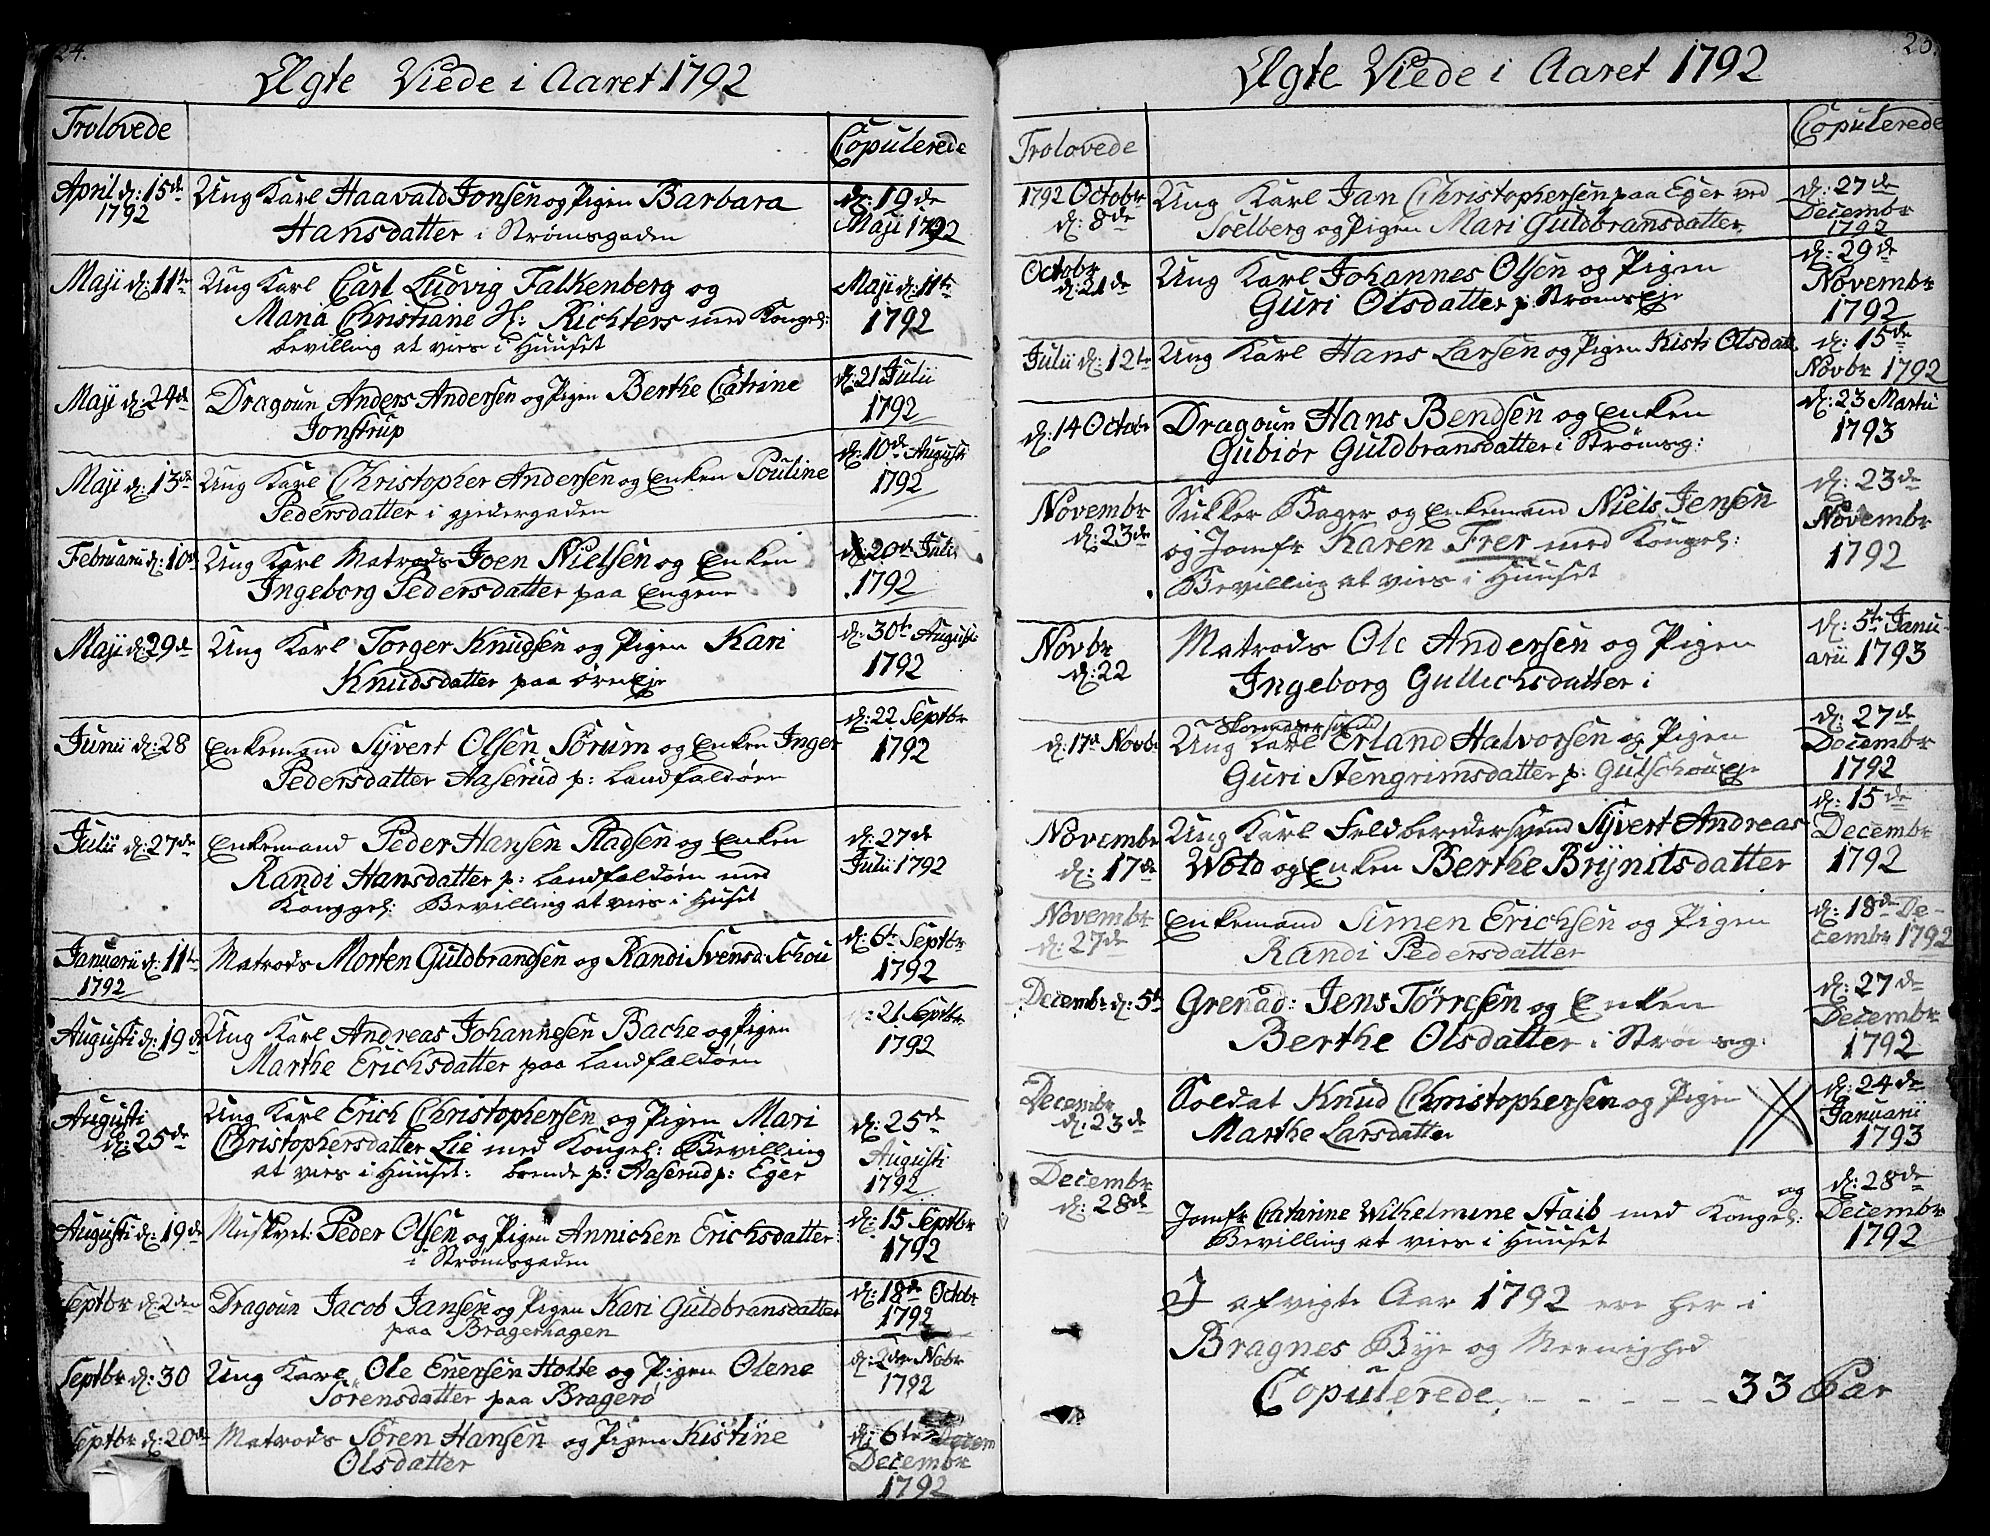 24.
Ægte Viede i Aaret 1792
Trolovede
Copulerede
April d: 15de
1792
Ung Karl Haavald Jonsen og Pigen Barbara
Hansdatter i Strømsgaden
d: 19de
Maji 1792
Maji d: 11te
Ung Karl Carl Ludvig Falkenberg og
Maria Christiane H: Richters med Kongel:
bevilling at vies i Huuset
Maji d: 11te
1792
Maji d: 24de
Dragoun Anders Andersen og Pigen Berthe Catrine
Jonstrup
d: 21 Julii
1792
Maji d: 13de
Ung Karl Christopher Andersen og Enken Pouline
Pedersdatter i gjedergaden
d: 10de Augusti
1792
Februarii d: 10de
Ung Karl Matrods Joen Nielsen og Enken
Ingeborg Pedersdatter paa Engene
d: 20de Julii
1792
Maji d: 29de
Ung Karl Torger Knudsen og Pigen Kari
Knudsdatter paa ørneEje
d: 30te Augusti
1792
Junii d: 28
Enkemand Syvert Olsen Sørum og Enken Inger
Pedersdatter Aaserud p: Landfaldøen
d: 22 Septbr
1792
Julii d: 27de
Enkemand Peder Hansen Stadsen og Enken
Randi Hansdatter p: Landfaldøen med
Konggel: Bevilling at vies i Huset
d: 27de
Julii 1792
Januarii d: 11te
1792
Matrods Morten Guldbrandsen og Randi Svensd: Schou
d: 6te Septbr
1792
Augusti d: 19de
Ung Karl Andreas Johannesen Bache og Pigen
Marthe Erichsdatter paa Landfaldøen
d: 21 Septbr
1792
Augusti
d: 25de
Ung Karl Erich Christophersen og Pigen Mari
Christophersdatter Lie med Kongel: Bevilling
at vies i Huuset: boende p: Aaserud p: Eger
d: 25de
Augusti
1792
Augusti d: 19de
Muskvet: Peder Olsen og Pigen Annichen Erichsdatter
i Strømsgaden
d: 15 Septbr
1792
Septbr d: 2den
Dragoun Jacob Jansen og Pigen Kari Guldbransdatter
paa Bragerhagen
d: 18de Octobr
1792
Septbr d: 30
Ung Karl Ole Enersen Holte og Pigen Olene
Sørensdatter paa Bragerø
d: 2den Nobr
1792
Septbr d: 20de
Matrods Søren Hansen og Pigen Kistine
Olsdatter
d: 6te
Decembr
1792
25.
Ægte Viede i Aaret 1792
Trolovede
Copulerede
1792 Octobr
d: 8de
Ung Karl Jan Christophersen paa Eger ved
Soelberg og Pigen Mari Guldbransdatter
d: 27de
Decembr
1792
Octobr
d: 21de
Ung Karl Johannes Olsen og Pigen
Guri Olsdatter p: StrømsEje
d: 29de
Novembr
1792
Julii d: 12te
Ung Karl Hans Larsen og Pigen Kisti Olsdatt
d: 15de
Novbr 1792
d: 14 Octobr
Dragoun Hans Bendsen og Enken
Gubiør Guldbransdatter i Strømsg:
d: 23 Martii
1793
Novembr
d: 23de
Sukker Bager og Enkemand Niels Jensen
og Jomfr Karen Frer med Kongel:
Bevilling at vies i Huuset
d: 23de
Novembr
1792
Novbr
d: 22
Matrods Ole Andersen og Pigen
Ingeborg Gullichsdatter i
d: 5te Janu
arii 1793
d: 17de Novbr
Ung Karl Erland Halvorsen og Pigen
Guri Stengrimsdatter p: GutschouEje
d: 27de
Decembr
1792
Novembr
d: 17de
Ung Karl Feldberedersvend Syvert Andreas
Wold og Enken Berthe Brynilsdatter
d: 15de
Decembr
1792
Novembr
d: 27de
Enkemand Simen Erichsen og Pigen
Randi Pedersdatter
d: 18de De-
cembr 1792
Decembr d: 5te
Grenad: Jens Tørresen og Enken
Berthe Olsdatter i Strømsg:
d: 27de
Decembr
1792
Decembr
d: 23de
Soldat Knud Christophersen og Pigen
Marthe Larsdatter
d: 24de
Januarii
1793
Decembr
d: 28de
og
Jomfr Catarine Wilhelmine Staib med Kongel:
Bevilling at vies i Huuset
d: 28de
Decembr
1792
I afvigte Aar 1792 ere her i
Bragnes Bye og Meenighed
Copulerede - - - - - - 33 Par